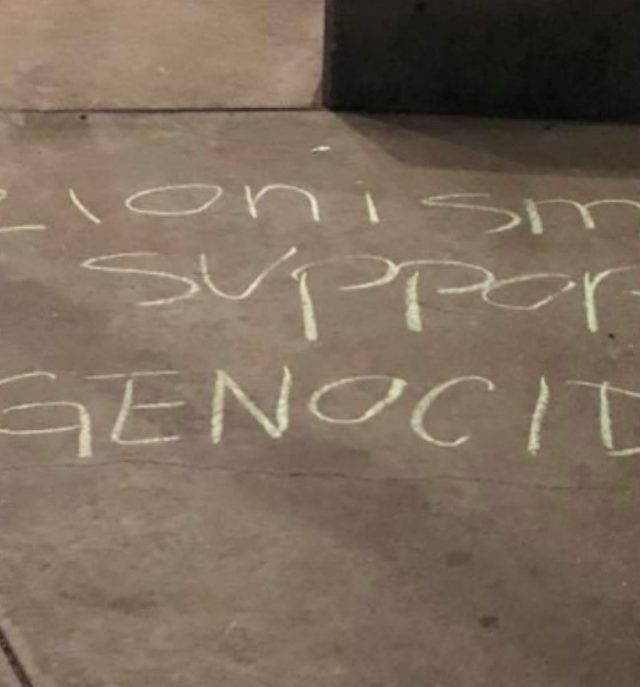 Zionism
SUPPOR
GENOCID